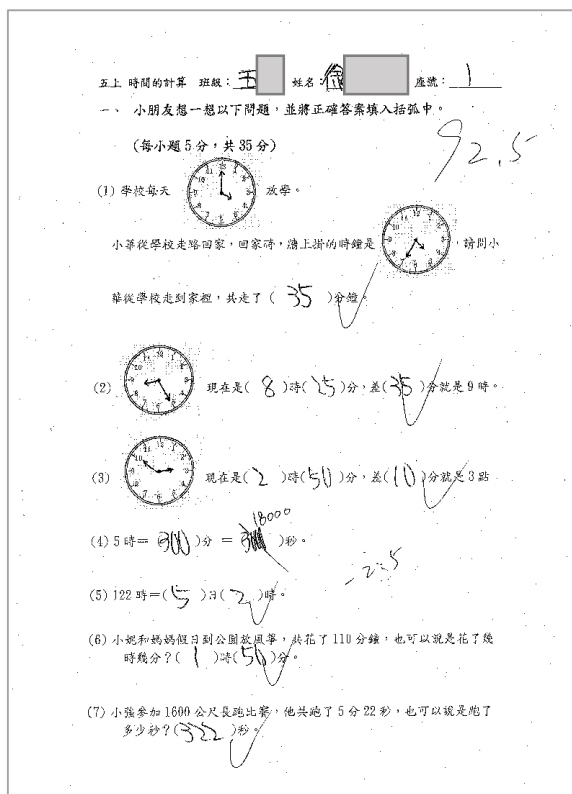 五上 時間的計算 班級：五 姓名：徐 座號：1
一、 小朋友想一想以下問題，並將正確答案填入括弧中。
92.5
（每小題 5 分，共 35 分）
(1) 學校每天 放學。
小華從學校走路回家，回家時，牆上掛的時鐘是 ，請問小
華從學校走到家裡，共走了（ 35 ）分鐘。
(2) 現在是( 8 )時(25)分，差(35)分就是 9 時。
(3) 現在是(2 )時(50)分，差(10)分就是 3 點
18000
(4) 5 時＝( 300 )分 ＝ ( )秒。
-2.5
(5) 122 時＝( 5 )日( 2 )時。
(6) 小妮和媽媽假日到公園放風箏，共花了 110 分鐘，也可以說是花了幾
時幾分？( 1 )時(50)分。
(7) 小強參加 1600 公尺長跑比賽，他共跑了 5 分 22 秒，也可以說是跑了
多少秒？(322 )秒。